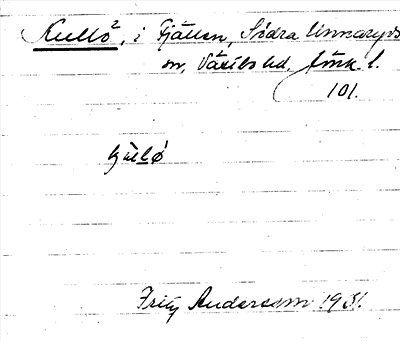 Kullö², i Fjällen, Södra Linneryds
sn, Värlbo hd. Jönk. l.
101.
kullö
Fritz Andersson 1931.